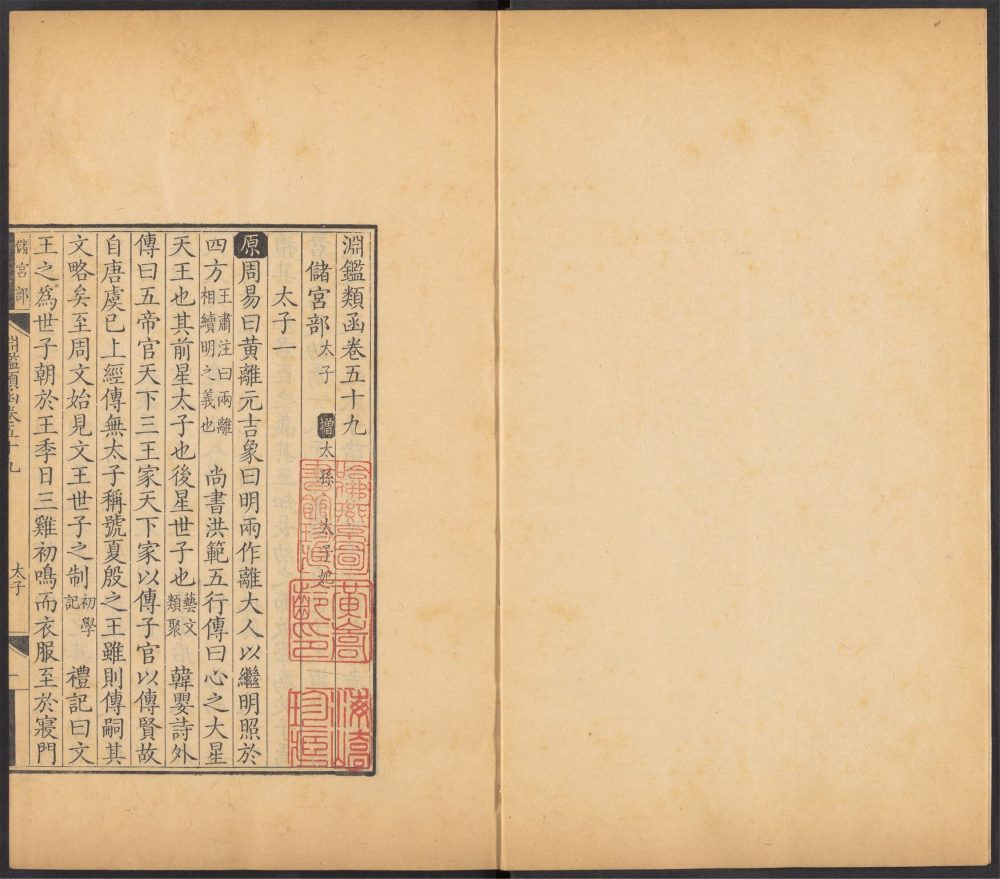 淵鑑類函卷五十九
儲宮部 太子 增 太孫 太子妃
太子一
原 周易曰黄離元吉象曰明兩作離大人以繼明照於
四方 王肅注曰兩離相續明之義也 尚書洪範五行傳曰心之大星
天王也其前星太子也後星世子也 藝文類聚 韓嬰詩外
傳曰五帝官天下三王家天下家以傳子官以傳賢故
自唐虞已上經傳無太子稱號夏殷之王雖則傳嗣其
文略矣至周文始見文王世子之制 初學記 禮記曰文
王之為世子朝於王季日三雞初鳴而衣服至於寢門
儲宮部 淵鑑類函卷五十九 太子 一